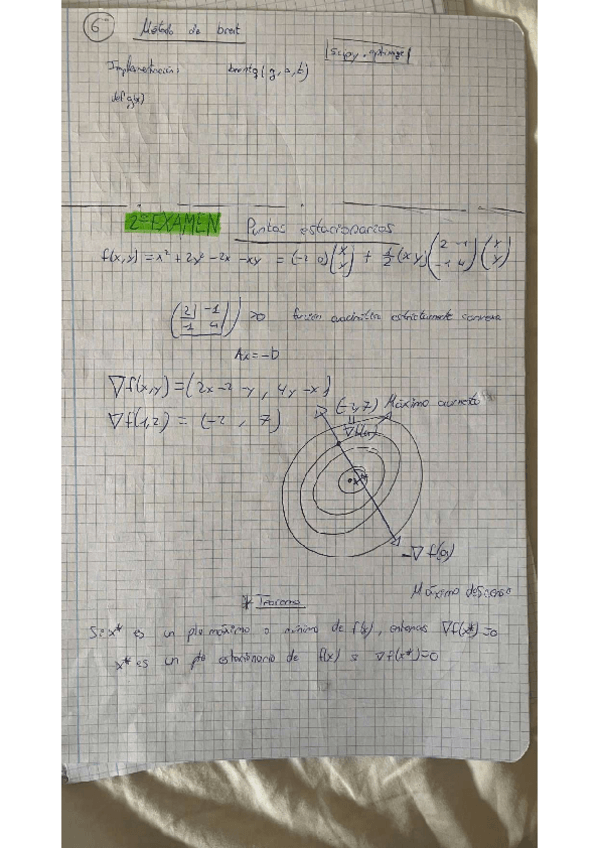 6 Método de brent
|scipy.optimize|
Implementación: brentq(g, a, b)
def g(x)
2º EXAMEN Puntos estacionarios
f(x,y) = x² + 2y² - 2x - xy = (-2 0)(x y) + 1/2 (x y)(2 -1 -1 4)(x y)
(2 -1 -1 4) >0 función cuadrática estrictamente convexa
Ax = -b
∇f(x,y) = (2x-2-y, 4y-x)
∇f(1,2) = (-2, 7)
(-2,7) Máximo aumento
x*
Máximo descenso
* Teorema
Si x* es un pto máximo o mínimo de f(x), entonces ∇f(x*)=0
x* es un pto estacionario de f(x) si ∇f(x*)=0